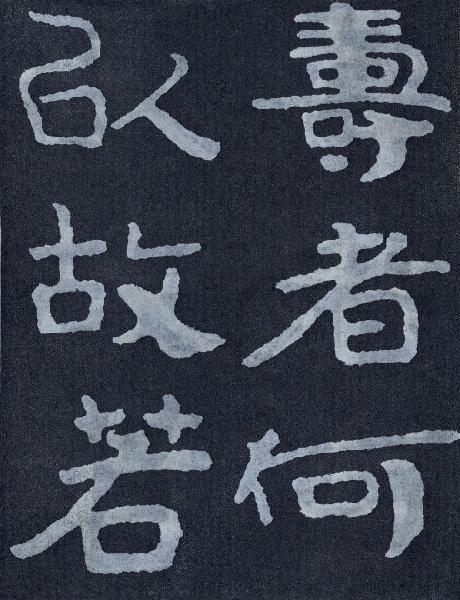 壽者何
以故若